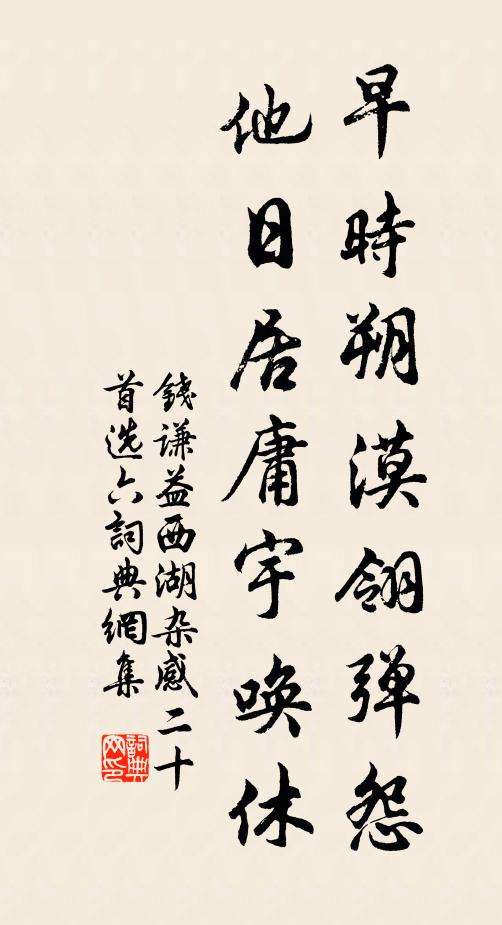 早時朔漠翎彈怨
他日居庸宇喚休
錢謙益西湖杂感二十
首选六詞典網集
詞典网印